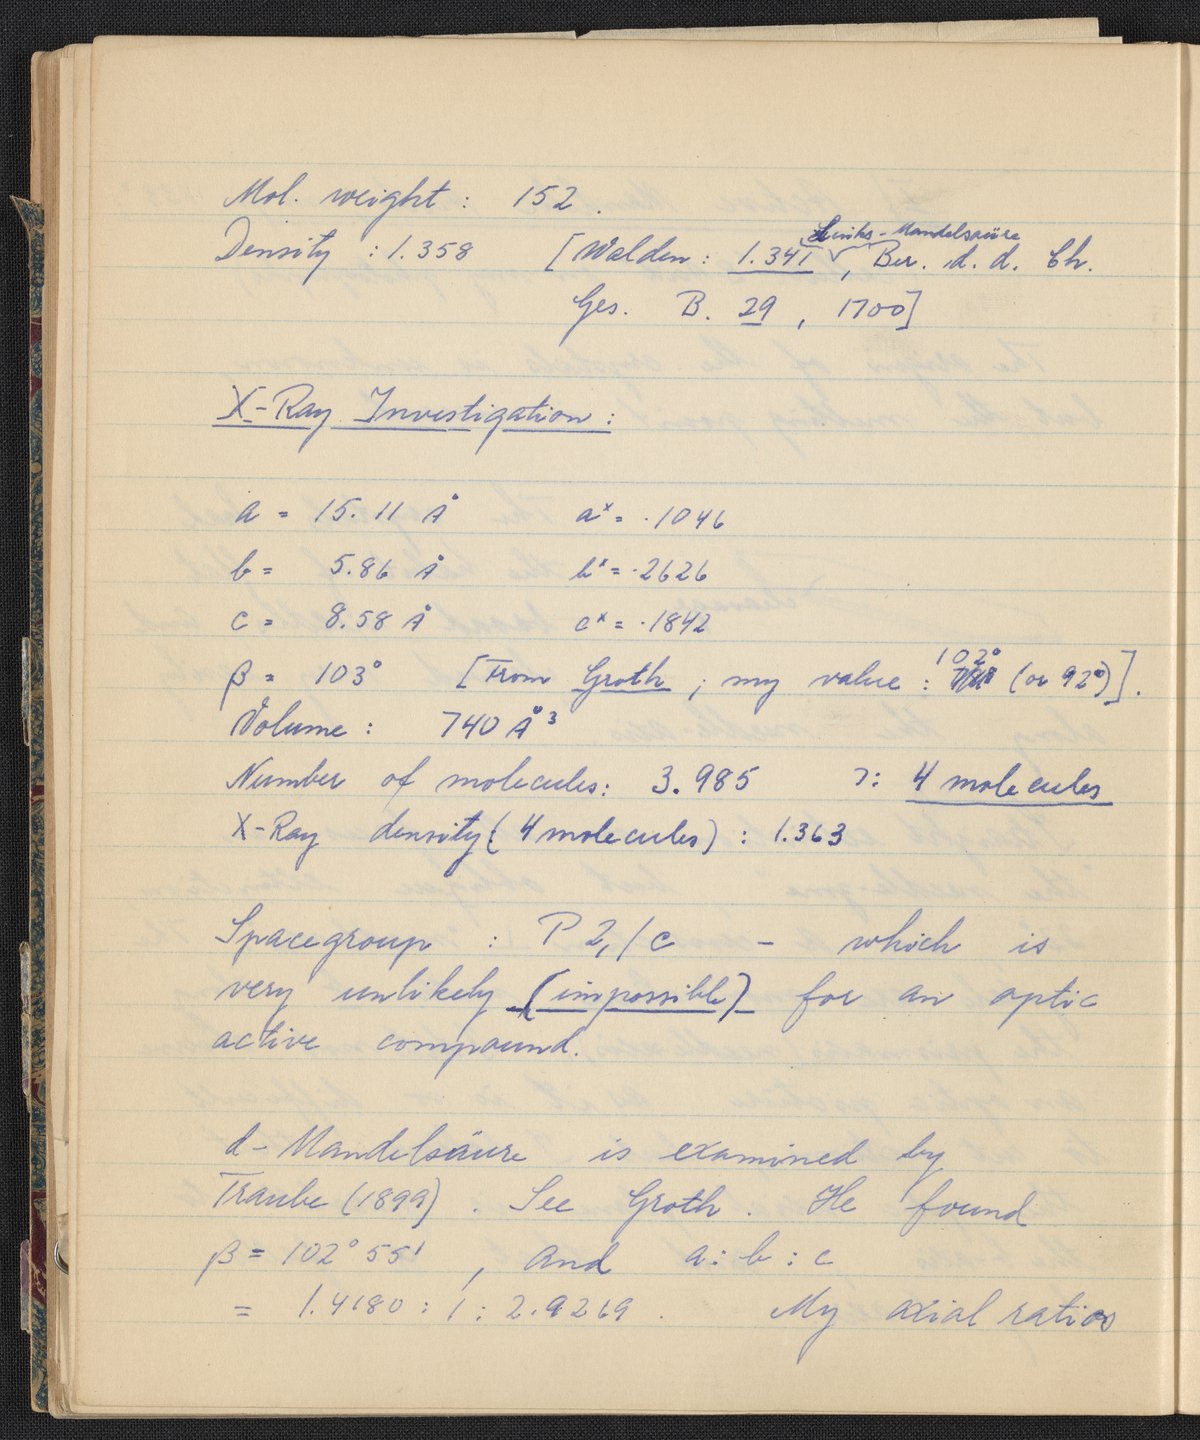 Mol. weight : 152.
Density : 1.358 [Walden : 1.341 Links-Mandelsaüre, Ber. d. d. Ch.
Ges. B. 29, 1700]
X-Ray Investigation :
a = 15.11 Å aˣ = .1046
b = 5.86 Å bˣ = .2626
c = 8.58 Å cˣ = .1842
β = 103° [From Groth ; my value : 102° (or 92°)].
Volume : 740 Å³
Number of molecules: 3.985 ɔ: 4 molecules
X-Ray density (4 molecules) : 1.363
Spacegroup : P 2₁/c – which is
very unlikely (impossible) for an optic
active compound.
d-Mandelsäure is examined by
Traube (1899). See Groth. He found
β = 102° 55', and a : b : c
= 1.4180 : 1 : 2.9269. My axial ratios